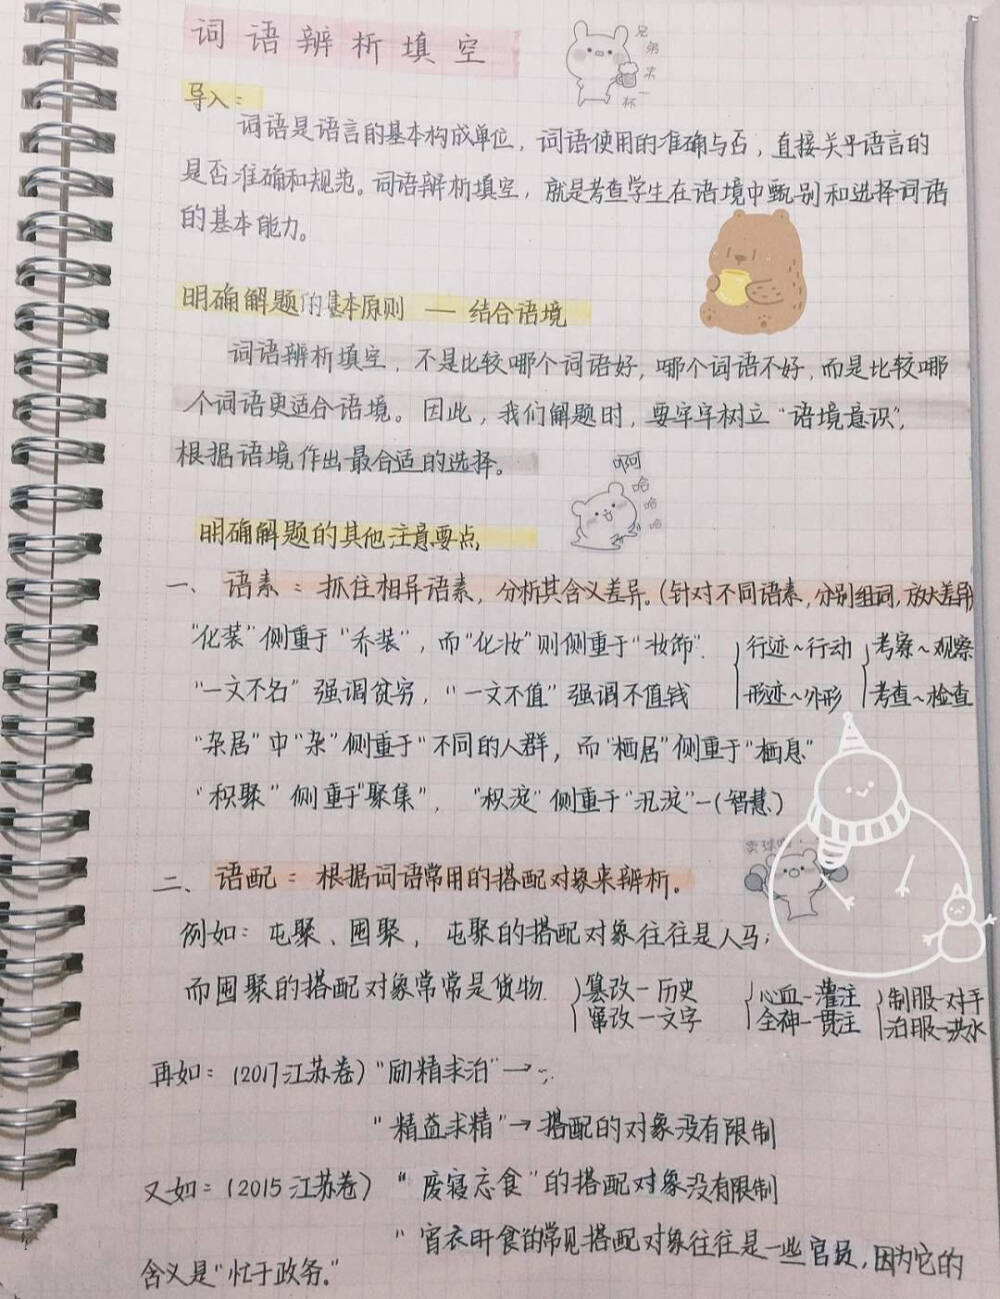 词语辨析填空
兄弟来一杯
导入：
词语是语言的基本构成单位，词语使用的准确与否，直接关乎语言的
是否准确和规范。词语辨析填空，就是考查学生在语境中甄别和选择词语
的基本能力。
明确解题的基本原则 — 结合语境
词语辨析填空，不是比较哪个词语好，哪个词语不好，而是比较哪
个词语更适合语境。因此，我们解题时，要牢牢树立“语境意识”，
根据语境作出最合适的选择。
啊哈哈哈
明确解题的其他注意要点
一、语素：抓住相异语素，分析其含义差异。(针对不同语素，分别组词，放大差异)
“化装”侧重于“乔装”，而“化妆”则侧重于“妆饰”. 行迹~行动 考察~观察
“一文不名”强调贫穷，“一文不值”强调不值钱 形迹~外形 考查~检查
“杂居”中“杂”侧重于“不同的人群，而“栖居”侧重于“栖息”
“积聚”侧重于“聚集”，“积淀”侧重于“沉淀”-(智慧)
二、语配：根据词语常用的搭配对象来辨析。
例如：屯聚、囤聚，屯聚的搭配对象往往是人马；
而囤聚的搭配对象常常是货物. 篡改-历史 心血-灌注 制服-对手
窜改-文字 全神-贯注 治服-洪水
再如：(2017江苏卷)“励精求治”→
“精益求精”→搭配的对象没有限制
又如：(2015江苏卷)“废寝忘食”的搭配对象没有限制
“宵衣旰食”的常见搭配对象往往是一些官员，因为它的
含义是“忙于政务。”